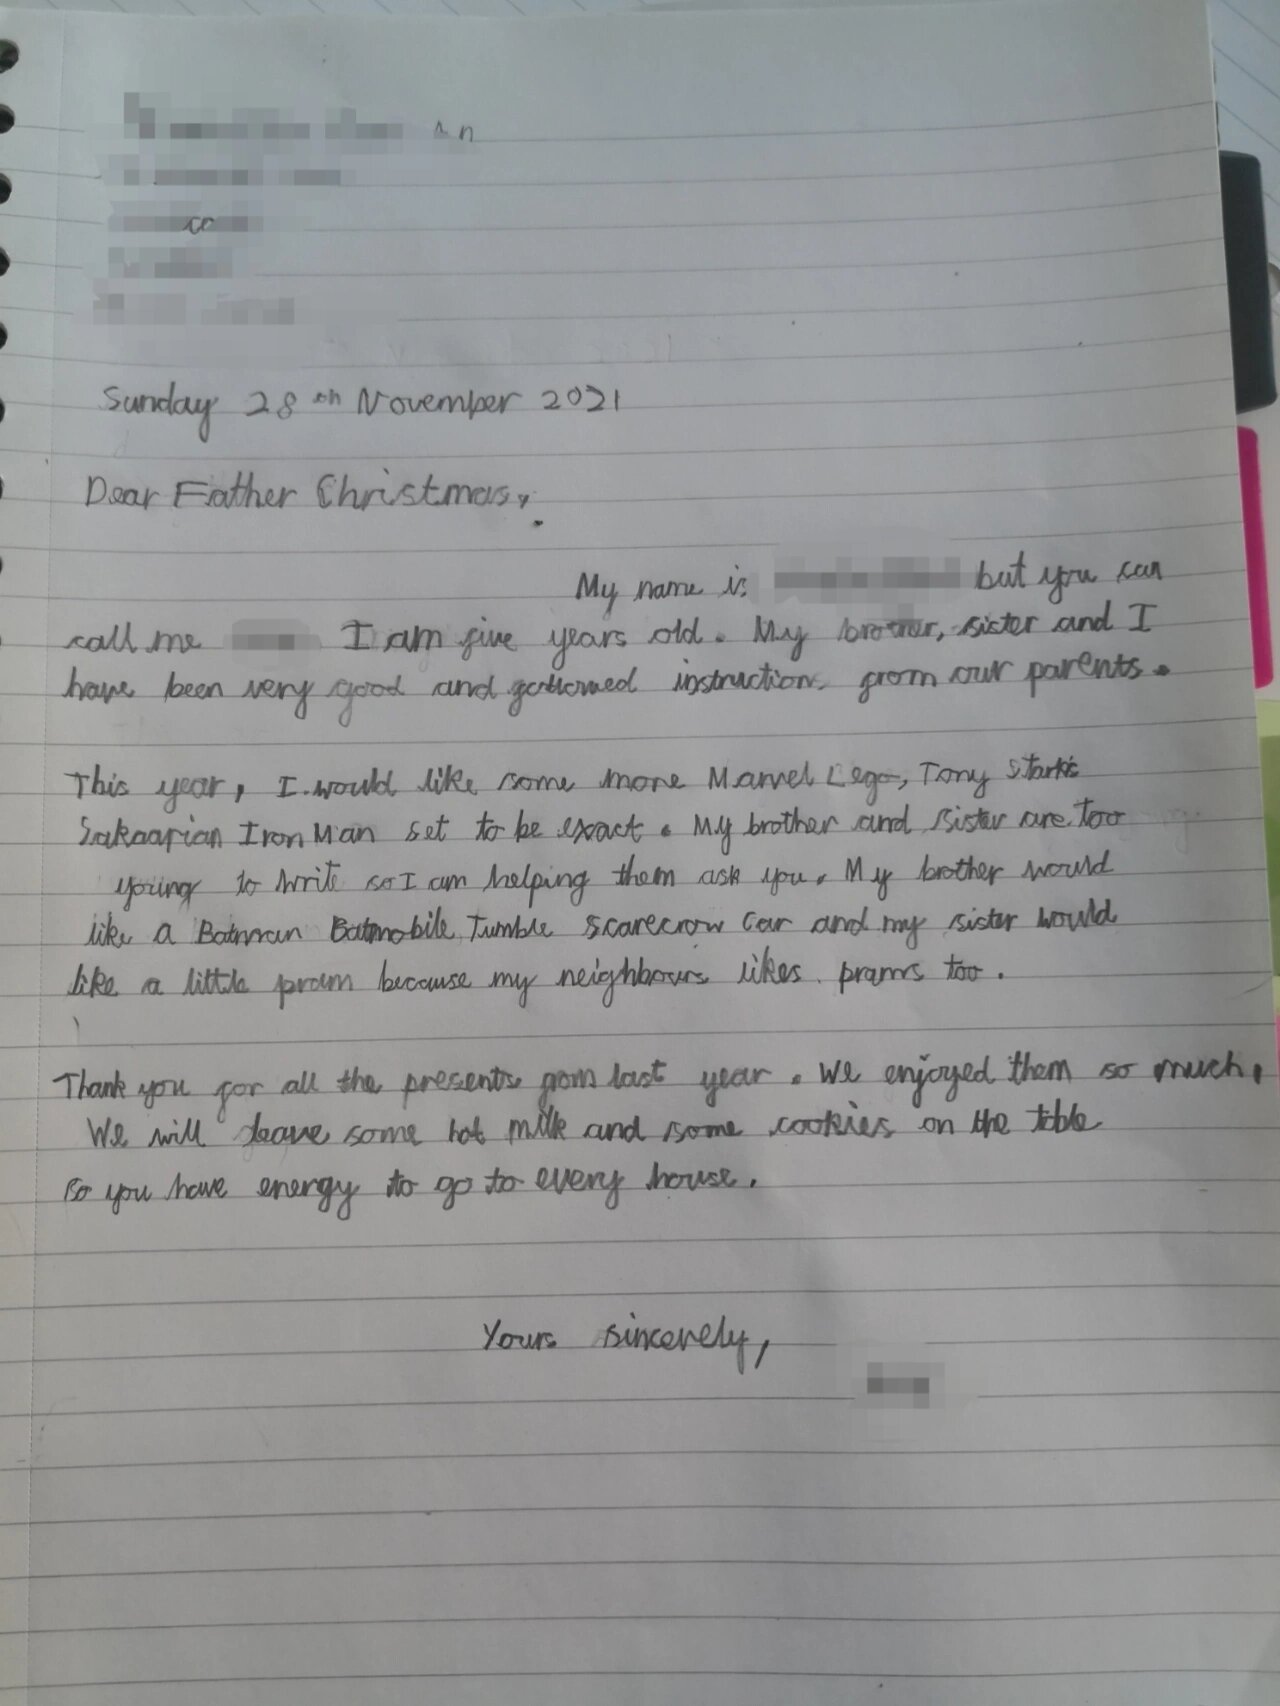 Sunday 28th November 2021
Dear Father Christmas,
My name is but you can
call me I am five years old. My brother, sister and I
have been very good and instructions from our parents.
This year, I would like some more Marvel Lego, Tony Stark's
Sakaarian Iron Man set to be exact. My brother and sister are too
young to write so I am helping them ask you. My brother would
like a Batman Batmobile Tumble Scarecrow Car and my sister would
like a little pram because my neighbours likes prams too.
Thank you for all the presents from last year. We enjoyed them so much.
We will leave some hot milk and some cookies on the table
so you have energy to go to every house.
Yours sincerely,